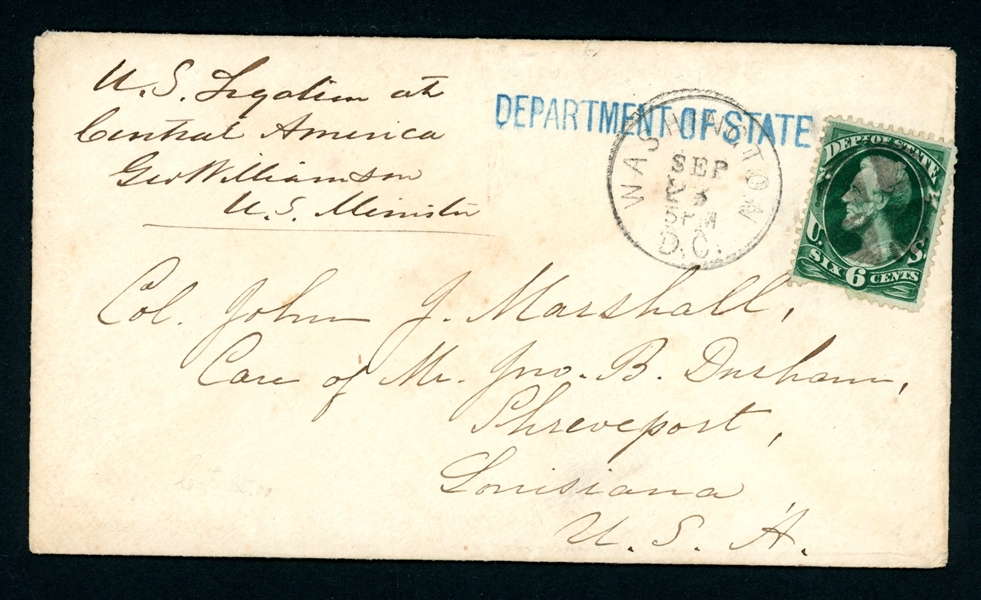 U.S. Legation at
Central America
Geo Williamson
U.S. Minister
DEPARTMENT OF STATE
WASHINGTON
SEP
23
5PM
D.C.
DEPT. OF STATE
U. S.
SIX 6 CENTS
Col. John J. Marshall,
Care of Mr. Jno. B. Durham,
Shreveport,
Louisiana
U. S. A.